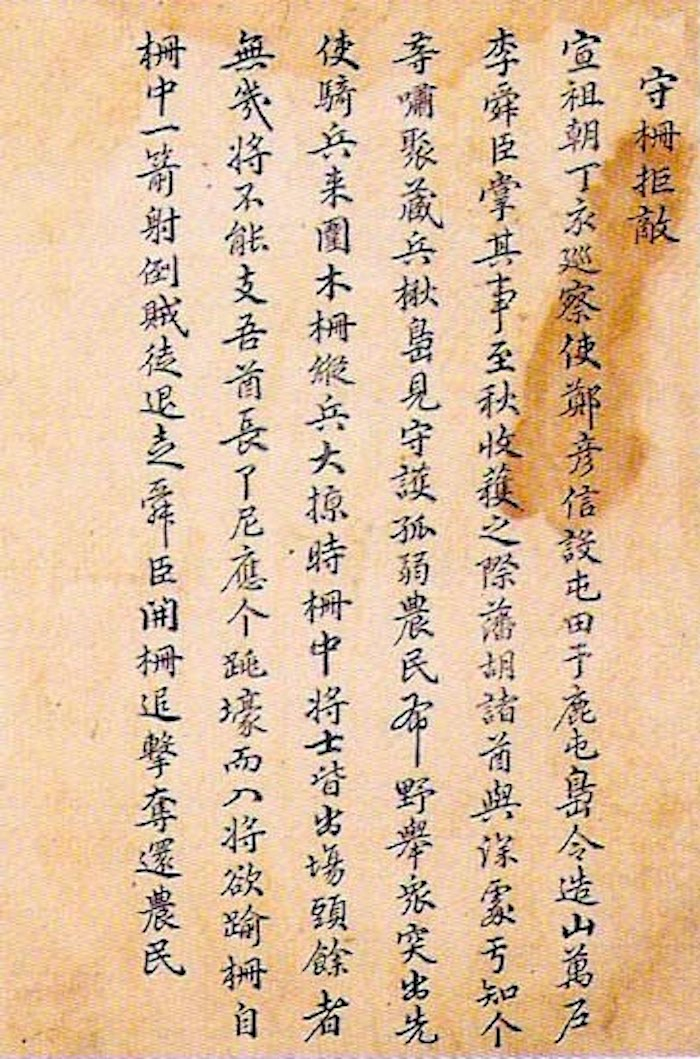 守柵拒敵
宣祖朝丁亥巡察使鄭彦信設屯田于鹿屯島令造山萬戶
李舜臣掌其事至秋收穫之際藩胡諸酋與深處亏知个
等嘯聚藏兵楸島見守護孤弱農民布野舉衆突出先
使騎兵来圍木柵縱兵大掠時柵中将士皆出場頭餘者
無幾将不能支吾酋長亇尼應个跳壕而入将欲踰柵自
柵中一箭射倒賊徒退走舜臣開柵追擊奪還農民